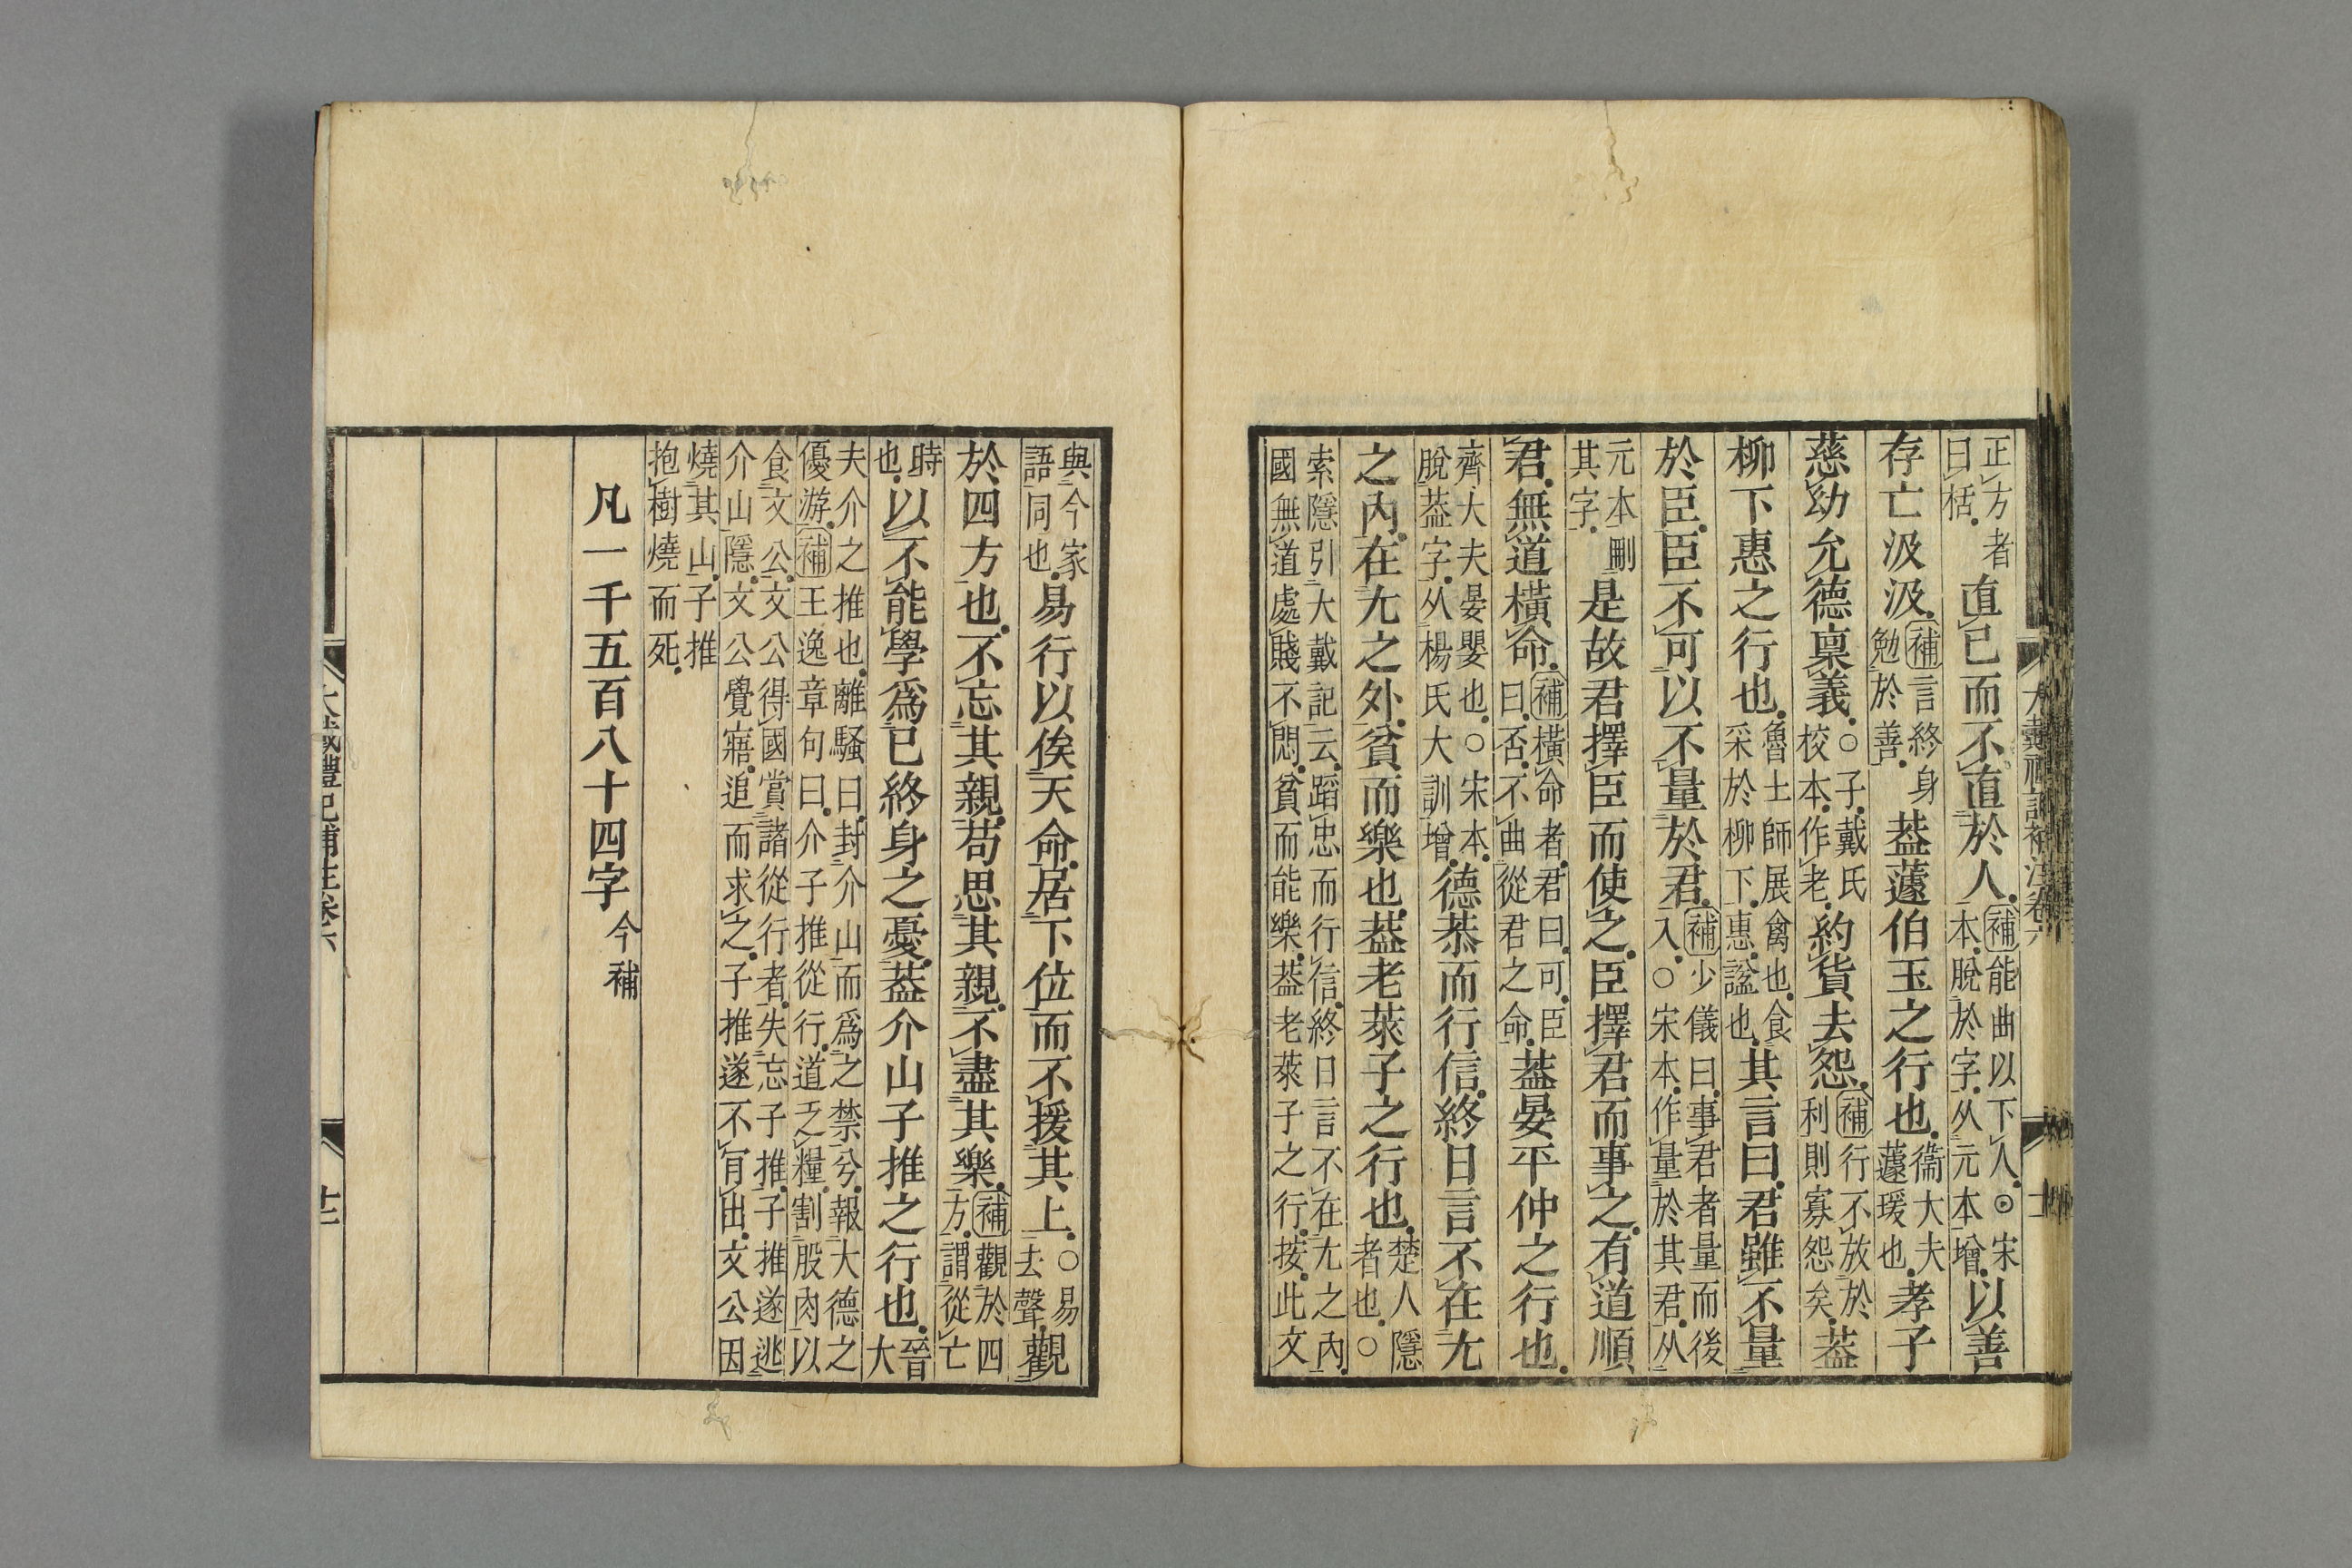 正方者
曰桰
直己而不直於人
補能曲以下人⊙宋
本脫於字从元本增
以善
存亡汲汲
補言終身
勉於善
葢蘧伯玉之行也
衞大夫
蘧瑗也
孝子
慈幼允德稟義
○子戴氏
校本作老
約貨去怨
補行不放於
利則寡怨矣
葢
柳下惠之行也
魯士師展禽也食
采於柳下惠謚也
其言曰君雖不量
於臣臣不可以不量於君
補少儀曰事君者量而後
入○宋本作量於其君从
元本刪
其字
是故君擇臣而使之臣擇君而事之有道順
君無道橫命
補橫命者君曰可臣
曰否不曲從君之命
葢晏平仲之行也
齊大夫晏嬰也○宋本
脫葢字从楊氏大訓增
德恭而行信終日言不在尤
之內在尤之外貧而樂也葢老萊子之行也
楚人隱
者也○
索隱引大戴記云蹈忠而行信終日言不在尤之內
國無道處賤不悶貧而能樂葢老萊子之行按此文
與今家
語同也
易行以俟天命居下位而不援其上
○易
去聲
觀
於四方也不忘其親苟思其親不盡其樂
補觀於四
方謂從亡
時
也
以不能學爲己終身之憂葢介山子推之行也
晉
大
夫介之推也離騷曰封介山而爲之禁兮報大德之
優游補王逸章句曰介子推從行道乏糧割股肉以
食文公文公得國賞諸從行者失忘子推子推遂逃
介山隱文公覺寤追而求之子推遂不肎出文公因
燒其山子推
抱樹燒而死
凡一千五百八十四字
今補
大戴禮記補注卷六